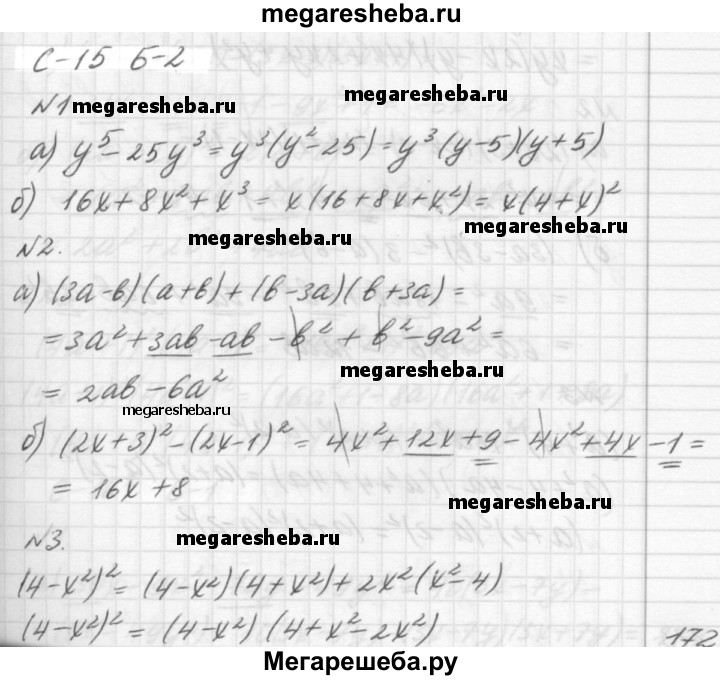 megaresheba.ru
С-15 Б-2
№1 megaresheba.ru megaresheba.ru
а) y⁵-25y³=y³(y²-25)=y³(y-5)(y+5)
б) 16x+8x²+x³=x(16+8x+x²)=x(4+x)²
№2. megaresheba.ru megaresheba.ru
а) (3a-b)(a+b)+(b-3a)(b+3a)=
=3a²+3ab-ab-b²+b²-9a²=
=2ab-6a² megaresheba.ru
megaresheba.ru
б) (2x+3)²-(2x-1)²=4x²+12x+9-4x²+4x-1=
=16x+8 megaresheba.ru
№3. megaresheba.ru
(4-x²)²=(4-x²)(4+x²)+2x²(x²-4)
(4-x²)²=(4-x²)(4+x²-2x²) 172
Мегарешеба.ру